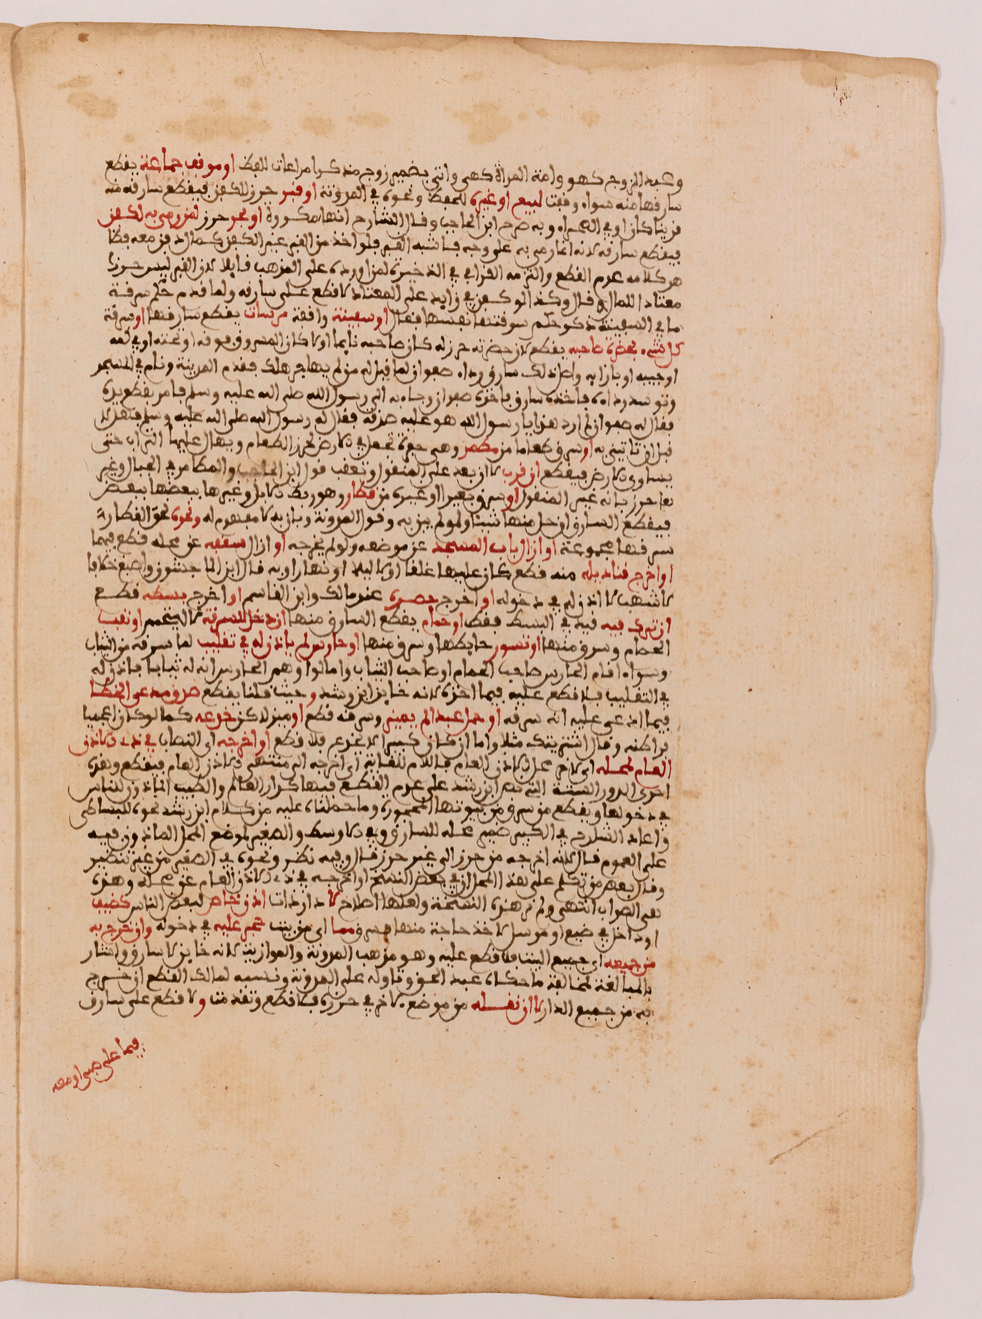 وعبد الزوج كهو وامة المراة كهي وانثى بضمير زوج مذكرا مراعات للفظ او موقف جماعة يقطع
سارقها منه سواء وقفت لبيع او غيره للحفظ ونحوه في المدونة او قبر حرز للكفن فيقطع سارقه منه
قريبا كان او في الصحراء وبه صرح ابن الحاجب وقال الشارح انها مكروة او بحر حرز لمن رمي به لكفن
فيقطع سارقه لانه انما رمي به على وجه فاشبه القبر فلو اخذ من القبر غير الكفن كمال دفن معه فظا
هر كلامه عدم القطع والتزمه القرافي في الذخيرة لمن اورده على المذهب قايلا لان القبر ليس حرزا
معتادا للمال قال وكذا لو كفن في زايد على المعتاد لا قطع على سارقه ولما قدم حكم سرقة
ما في السفينة ذكر حكم سرقتها نفسها فقال او سفينة واقفة مرسات يقطع سارقها او سرقة
كل شيء بحضرة صاحبه يقطع لان حضرته حرز له كان صاحبه نايما او لا كان المسروق فوقه او تحته او في كمه
او جيبه او بازايه واصل ذلك سارق رداء صفوان لما قيل له من لم يهاجر هلك فقدم المدينة ونام في المسجد
وتوسد رداءه فاخذه سارق فاخذه صفوان وجاء به الى رسول الله صلى الله عليه وسلم فامر بقطع يده
فقال له صفوان لم ارد هذا يا رسول الله هو عليه صدقة فقال له رسول الله صلى الله عليه وسلم فهلا
قبل ان تاتيني به او سرق طعاما من مطمر وهي حفرة تجعل في الارض لخزن الطعام ويهال عليها التراب حتى
يساوي الارض فيقطع ان قرب لا ان بعد على المنقول وتعقب قول ابن الحاجب والمطامر في الجبال وغير
ها حرز بانه غير المنقول او سرق بعيرا او غيره من قطار وهو ربط الابل وغيرها بعضها ببعض
فيقطع السارق ان حل منها شيئا ولو لم يبن به وقول المدونة وبان به لا مفهوم له ونحوه نحو القطار ة
سرقتها مجموعة او ازال باب المسجد عن موضعه ولو لم يخرجه او ازال سقفه عن محله قطع فيهما
او اخرج قناديله منه قطع كان عليها غلقا او لا ليلا او نهارا وبه قال ابن الماجشون واصبغ خلافا
لاشهب لا اذن لهم في دخوله او اخرج حصره عند مالك وابن القاسم او اخرج بسطه قطع
ان تركت فيه فيه في البسط فقط او حمام يقطع السارق منها ان دخل للسرقة لا ليتحمم او نقب
الحمام وسرق منها او تسور حايطها وسرق منها او حارس لم ياذن له في تقليب لما سرقه من الثياب
وسواء اقام الحارس صاحب الحمام او صاحب الثياب واما لو اوهم الحارس انه له ثيابا فاذن له
في التقليب فلا قطع عليه فيما اخذه لانه خاين ابن رشد وحيث قلنا يقطع صدق مدعي الخطا
فيما ادعي عليه انه سرقه او حمل عبدا لم يميز وسرقه قطع او ميز لاكن خدعه كما لو كان اعجميا
فراطنه وقال اشتريتك مثلا واما ان كان كبيرا لا يخدع فلا قطع او اخرجه اي النصاب في ذي الاذن
العام لمحله اي لاخر محل الاذن العام فاللام للغاية اي اخرجه الى منتهى الاذن العام فيقطع وهذه
احدى الدور الستة التي ذكر ابن رشد على عدم القطع فيها كدار العالم والطبيب الماذون للناس
في دخولها ويقطع من سرق من بيوتها المحجورة وما حملناه عليه من كلام ابن رشد نحوه للبساطي
واعاد الشارح في الكبير ضمير محله للسارق وفي الاوسط والصغير لموضع المحل الماذون فيه
على العموم قال لانه اخرجه من حرز الى غير حرز قال وفيه نظر ونحوه في الصغير من غير تنظير
وقال بعض من تكلم على هذا المحل ان في بعض النسخ او اخرجه في ذي الاذن العام عن محله وهذه
هي الصواب انتهى ولم ار هذه النسخة ولعلها اصلاح لا دار ذات اذن خاص لبعض الناس كضيف
او داخل في ضيع او مرسل لاخذ حاجة منها فسرق مما اي من بيت حجر عليه في دخوله وان خرج به
من جميعه اي جميع البيت فلا قطع عليه وهو مذهب المدونة والموازية لانه خاين لا سارق واشار
بالمبالغة لمخالفة ما حكاه عبد الحق وتاوله على المدونة ونسبه لمالك القطع ان خرج
به من جميع الدار لا ان نقله من موضع لاخر في حرزه فلا قطع وتقدمت ولا قطع على سارق
فيما على صبي او معه